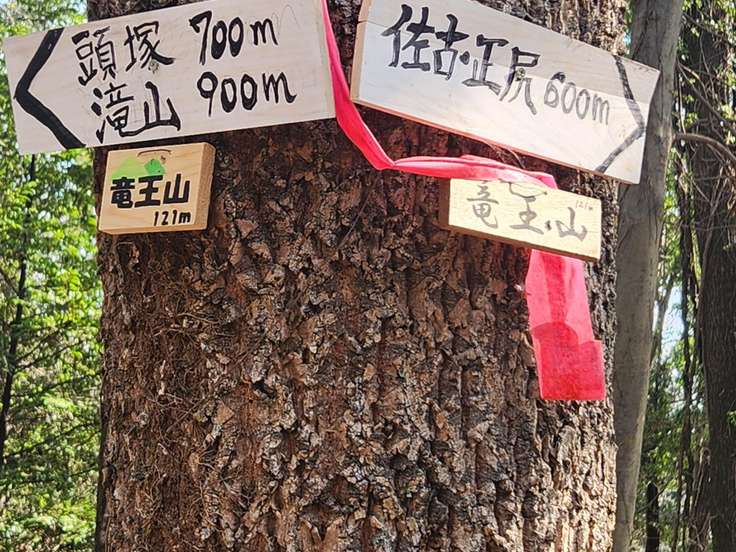 頭塚 700m
滝山 900m
佐古・正尻 600m
竜王山
121m
121m
竜王山